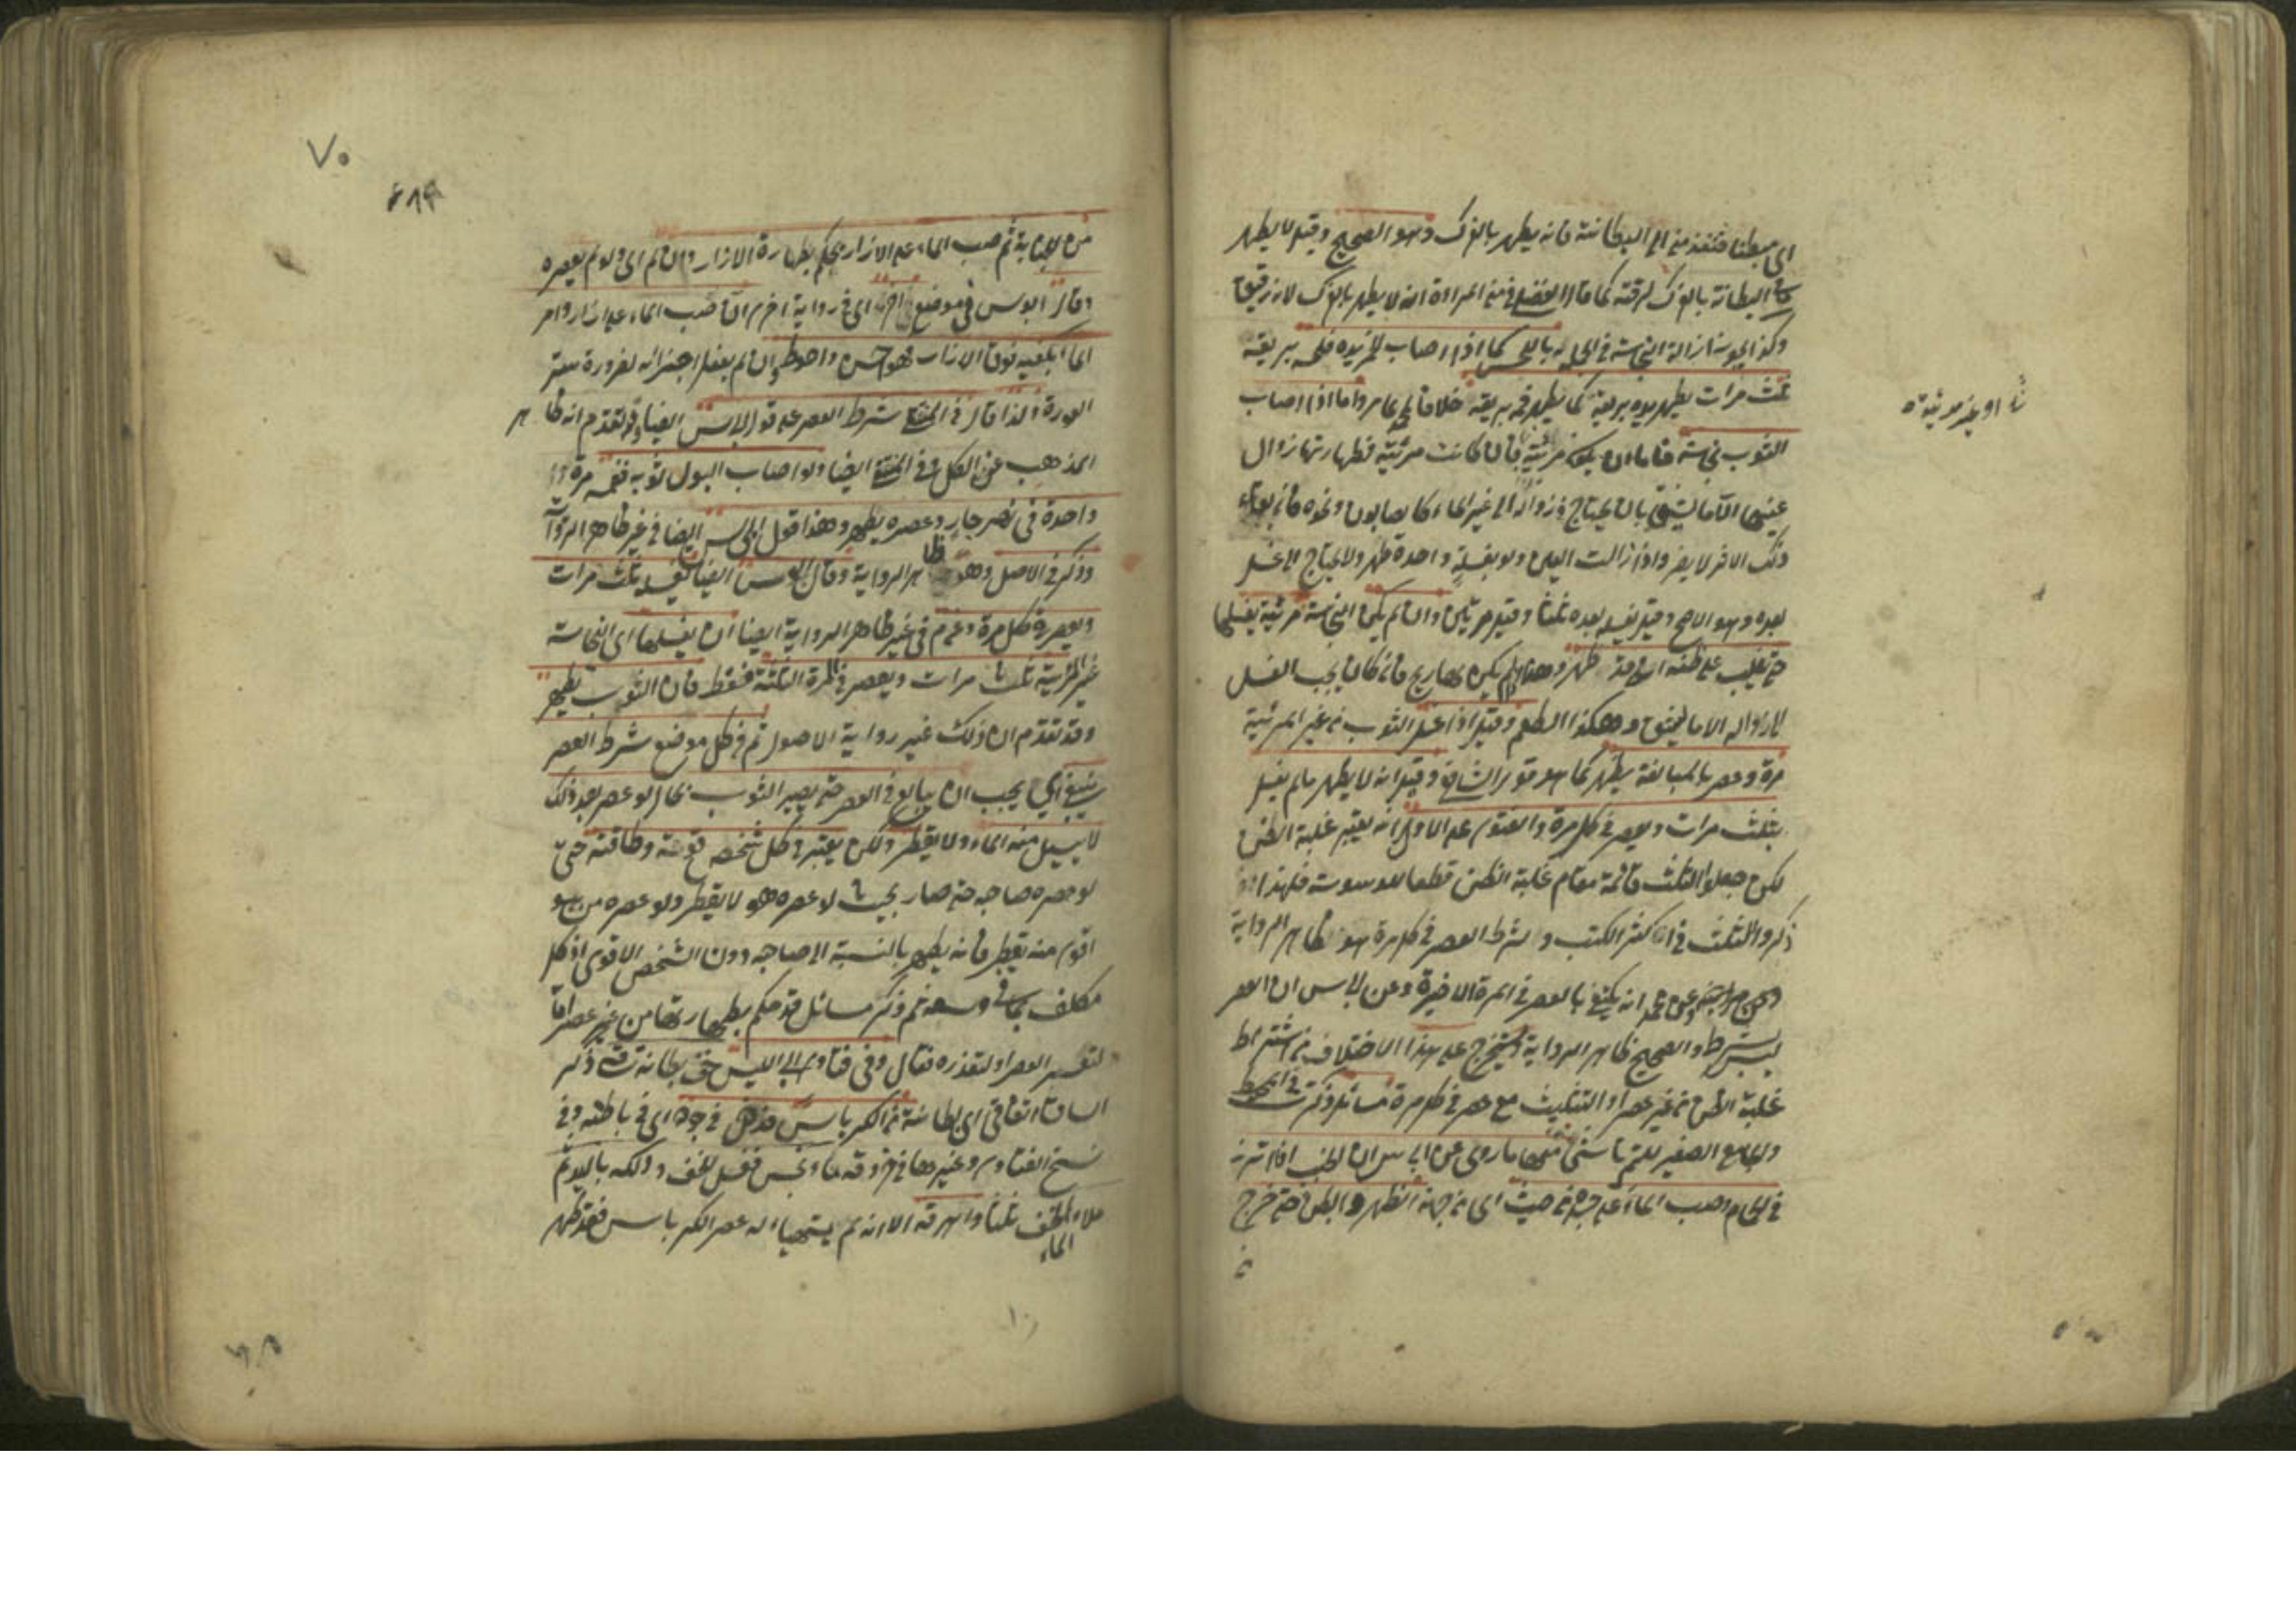 اى مبطنا فتنفذ منه الى البطانة فانه يطهر بالفرك وهو الصحيح وقيل لا يطهر
البطانة بالفرك لرقته كما قال الفضلى فى منى المراة انه لا يطهر بالفرك لانه رقيق
وكذا يجوز ازالة النجاسة فى الجملة باللحس كما اذا اصاب الخمر يده فلحسه بريقه
ثلث مرات يطهر يده بريقه كما يطهر فمه بريقه خلافا لمحمد كما مر واما اذا اصاب
الثوب نجاسة فاما ان يكون مرئية فان كانت مرئية فطهارتها زوال
عينها الا ما يشق بان يحتاج فى زواله الى غير الماء كالصابون ونحوه فان بقاء
ذلك الاثر لا يضر واذا زالت العين ولو بغسلة واحدة طهر ولا يحتاج الى غسل
بعده وهو الاصح وقيل يغسله بعده ثلثا وقيل مرتين وان لم يكن النجاسة مرئية يغسلها
حتى يغلب على ظنه انه قد طهر وهذا ان لم يكن لها ريح فانه كان يجب الغسل
لازواله الا ما يشق وهكذا الطعم وقيل اذا غسل الثوب من غير المرئية
مرة وعصر بالمبالغة يطهر كما هو قول الشافعى وقيل انه لا يطهر مالم يغسل
بثلث مرات ويعصر فى كل مرة والفتوى على الاول انه يعتبر غلبة الظن
لكن جعلوا الثلث قائمة مقام غلبة الظن قطعا للوسوسة فلهذا
ذكروا الثلث فى اكثر الكتب واشترط العصر فى كل مرة هو ظاهر الرواية
وعن محمد انه يكتفى بالعصر فى المرة الاخيرة وعن ابى س ان العصر
ليس بشرط والصحيح ظاهر الرواية ويتخرج على هذا الاختلاف من اشتراط
غلبة الظن من غير عصر او التثليث مع عصر فى كل مرة مسائل ذكرت فى المحيط
والجامع الصغير للتمرتاشى منها ما روى عن ابى س ان الجنب اذا اتزر
فى الحمام وصب الماء على جسده من حيث اى من جهة الظهر والبطن حتى خرج
او غير مرئية
٧٠
من الجنابة ثم صب الماء على الازار يحكم بطهارة الازار وان لم اى ولو لم يعصره
وقال ابو س فى موضع آخر اى فى رواية اخرى ان صب الماء على ازاره وامر
الماء بكفيه فوق الازار فهو احسن واحوط وان لم يفعل اجزاه لضرورة ستر
العورة ولذا قال فى المنتقى شرط العصر على قول ابى س ايضا وقد تقدم انه ظاهر
المذهب عن الكل وفى المنتقى ايضا ولو اصاب البول ثوبه فغمسه مرة
واحدة فى نهر جار وعصره يطهر وهذا قول ابى س ايضا فى غير ظاهر الرواية
وذكر فى الاصل وهو ظاهر الرواية وقال ابو س ايضا يغسله ثلث مرات
ويعصر فى كل مرة وعن م فى غير ظاهر الرواية ايضا ان يغسلها اى النجاسة
غير المرئية ثلث مرات ويعصر فى المرة الثالثة فقط فان الثوب يطهر
وقد تقدم ان ذلك غير رواية الاصول ثم فى كل موضع شرط العصر
ينبغى اى يجب ان يبالغ فى العصر حتى يصير الثوب بحال لو عصر بعد ذلك
لا يسيل منه الماء ولا يقطر ولكن يعتبر فى كل شخص قوته وطاقته حتى
لو عصره صاحبه حتى صار بحيث لو عصره هو لا يقطر ولو عصره من هو
اقوى منه يقطر فانه يطهر بالنسبة الى صاحبه دون الشخص الاقوى اذ كل
مكلف بما فى وسعه ثم ذكر مسائل قد حكم بطهارتها من غير عصر اما
لتعسر العصر او لتعذره فقال وفى فتاوى ابى الليث خف بطانة ساقه ذكر
الساق اتفاقى اى بطانته من الكرباس فدخل فى جوفه اى فى باطنه وفى
نسخ الفتاوى وغيرها فى خروقه ماء نجس فغسل الخف ودلكه باليد ثم
ملاء الخف ثلثا واهرقه الا انه لم يتهياء له عصر الكرباس فقد طهر
الماء